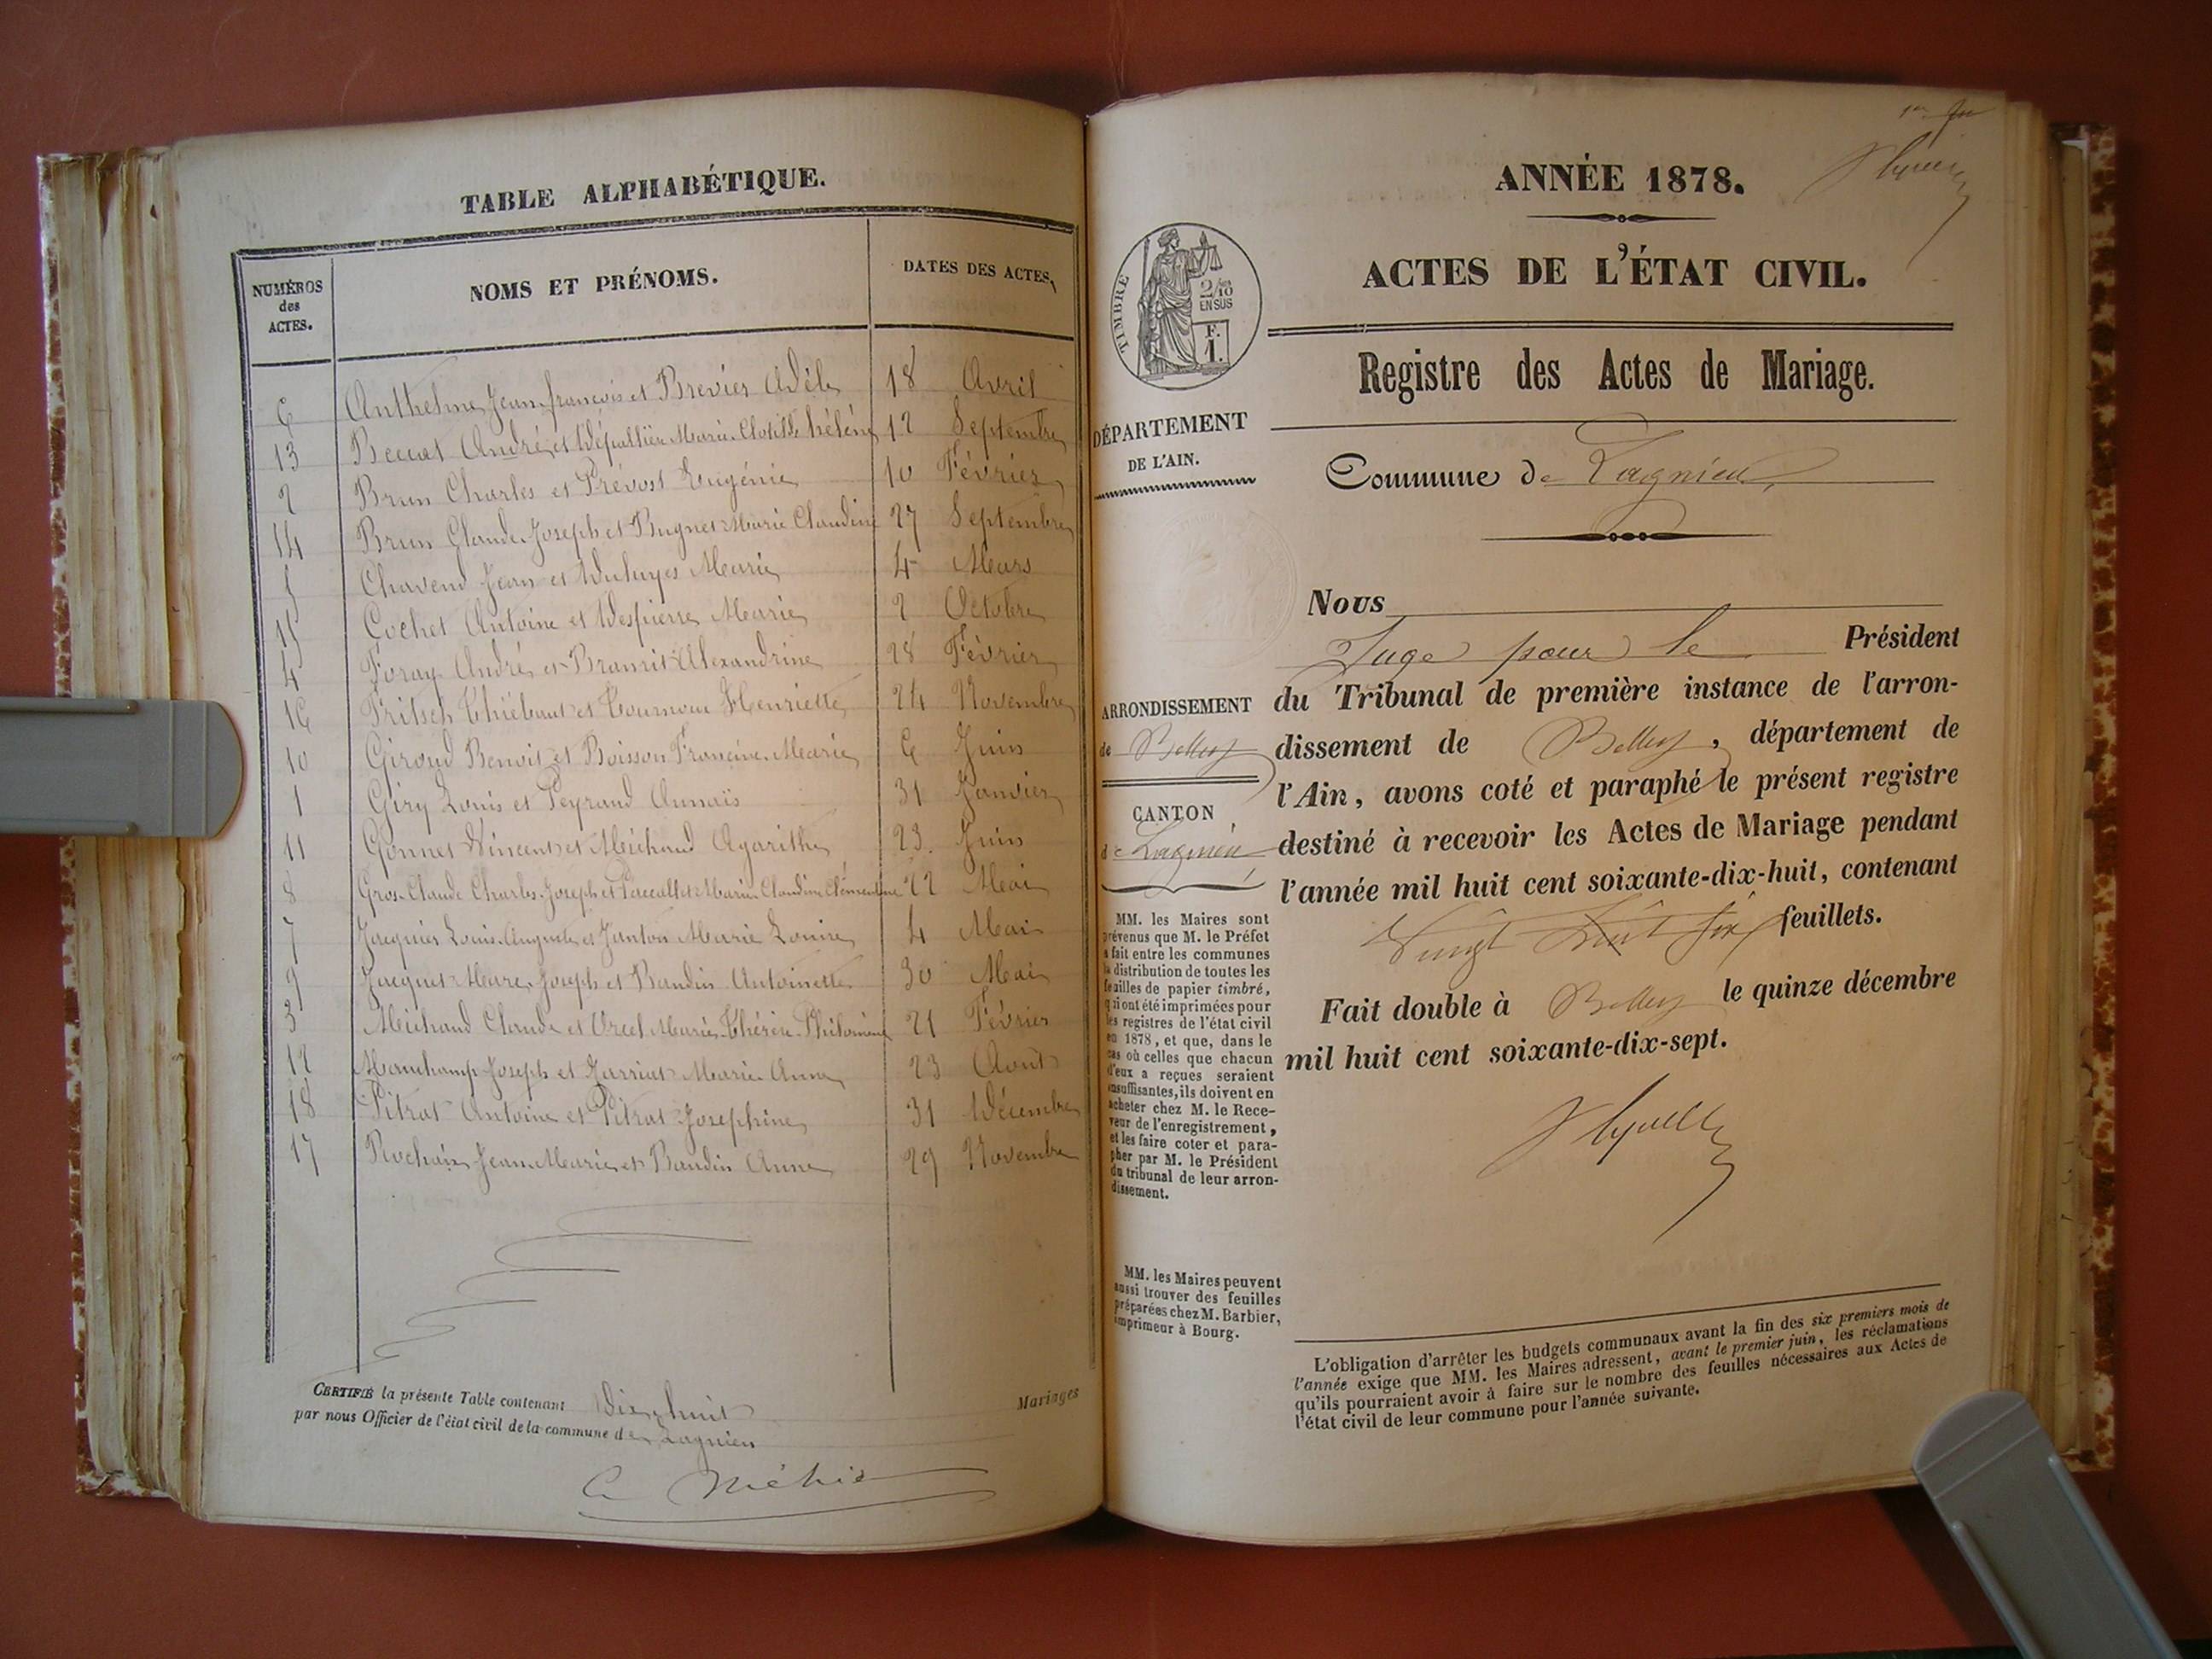 TABLE ALPHABÉTIQUE.
NUMÉROS des ACTES. NOMS ET PRÉNOMS. DATES DES ACTES,
6 Anthelme Jean-françois et Brevier Adèle 18 Avril
13 Beccat André et Dépallière Marie Clotilde hélène 12 Septembre
2 Brun Charles et Prévost Eugénie 10 Février
14 Brun Claude Joseph et Bugnet Marie Claudine 27 Septembre
5 Chavend Jean et Marie 4 Mars
15 Cochet Antoine et Despierre Marie 2 Octobre
4 Foray André et Alexandrine 28 Février
16 Fritsch Thiébaut et Tournour Henriette 24 Novembre
10 Giroud Benoit et Boisson Francine Marie 6 Juin
1 Giry Louis et Peyraud Anaïs 31 Janvier
11 Gonnet Vincent et Michaud Agarithe 23. Juin
8 Gros-Claude Charles-Joseph et Marie Claudine Clémentine 22 Mai
7 Jacquier Louis-Auguste et Janton Marie Louise 4 Mai
9 Jacquet Marc-Joseph et Baudin Antoinette 30 Mai
3 Michaud Claude et Orcel Marie-Thérèse-Philomène 21 Février
12 Monchamp Joseph et Jarriat Marie Anne 23 Août
18 Pitrat Antoine et Pitrat Josephine 31 Décembre
17 Rochaix Jean-Marie et Baudin Anne 29 Novembre
CERTIFIÉ la présente Table contenant Dix-huit Mariages
par nous Officier de l'état civil de la commune de Lagnieu
ANNÉE 1878.
TIMBRE
2/10 EN SUS
F. 1.
ACTES DE L'ÉTAT CIVIL.
Registre des Actes de Mariage.
DÉPARTEMENT
DE L'AIN.
Commune de Lagnieu
ARRONDISSEMENT
de Belley
CANTON
de Lagnieu
MM. les Maires sont
prévenus que M. le Préfet
a fait entre les communes
la distribution de toutes les
feuilles de papier timbré,
qui ont été imprimées pour
les registres de l'état civil
en 1878, et que, dans le
cas où celles que chacun
d'eux a reçues seraient
insuffisantes, ils doivent en
acheter chez M. le Rece-
veur de l'enregistrement,
et les faire coter et para-
pher par M. le Président
du tribunal de leur arron-
dissement.
MM. les Maires peuvent
aussi trouver des feuilles
préparées chez M. Barbier,
imprimeur à Bourg.
Nous
Juge pour le Président
du Tribunal de première instance de l'arron-
dissement de Belley, département de
l'Ain, avons coté et paraphé le présent registre
destiné à recevoir les Actes de Mariage pendant
l'année mil huit cent soixante-dix-huit, contenant
Vingt huit feuillets.
Fait double à Belley le quinze décembre
mil huit cent soixante-dix-sept.
L'obligation d'arrêter les budgets communaux avant la fin des six premiers mois de
l'année exige que MM. les Maires adressent, avant le premier juin, les réclamations
qu'ils pourraient avoir à faire sur le nombre des feuilles nécessaires aux Actes de
l'état civil de leur commune pour l'année suivante.